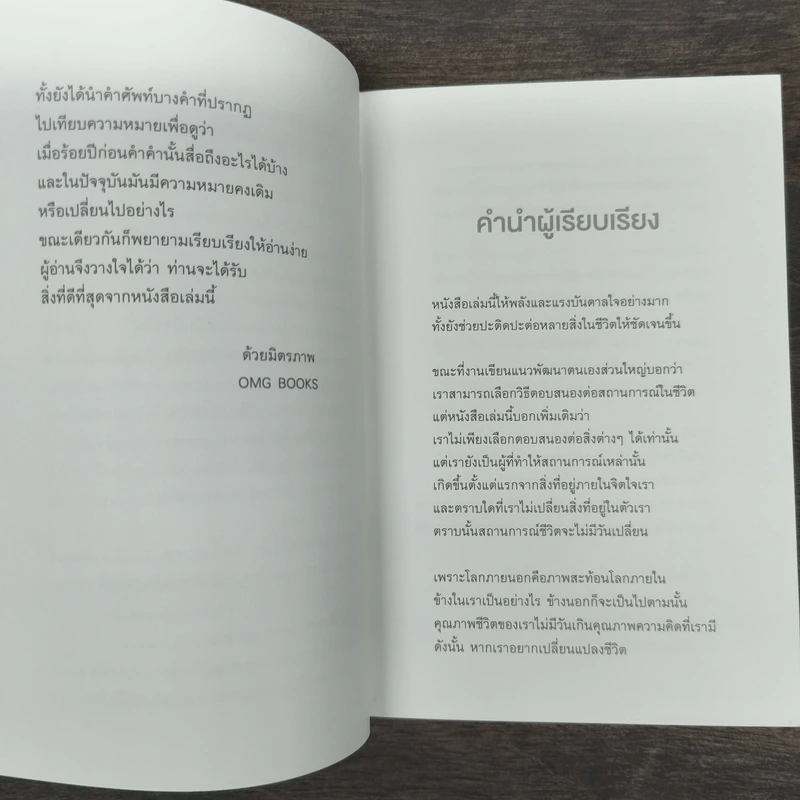 ทั้งยังได้นำคำศัพท์บางคำที่ปรากฏ
ไปเทียบความหมายเพื่อดูว่า
เมื่อร้อยปีก่อนคำคำนั้นสื่อถึงอะไรได้บ้าง
และในปัจจุบันมันมีความหมายคงเดิม
หรือเปลี่ยนไปอย่างไร
ขณะเดียวกันก็พยายามเรียบเรียงให้อ่านง่าย
ผู้อ่านจึงวางใจได้ว่า ท่านจะได้รับ
สิ่งที่ดีที่สุดจากหนังสือเล่มนี้
ด้วยมิตรภาพ
OMG BOOKS
คำนำผู้เรียบเรียง
หนังสือเล่มนี้ให้พลังและแรงบันดาลใจอย่างมาก
ทั้งยังช่วยปะติดปะต่อหลายสิ่งในชีวิตให้ชัดเจนขึ้น
ขณะที่งานเขียนแนวพัฒนาตนเองส่วนใหญ่บอกว่า
เราสามารถเลือกวิธีตอบสนองต่อสถานการณ์ในชีวิต
แต่หนังสือเล่มนี้บอกเพิ่มเติมว่า
เราไม่เพียงเลือกตอบสนองต่อสิ่งต่างๆ ได้เท่านั้น
แต่เรายังเป็นผู้ที่ทำให้สถานการณ์เหล่านั้น
เกิดขึ้นตั้งแต่แรกจากสิ่งที่อยู่ภายในจิตใจเรา
และตราบใดที่เราไม่เปลี่ยนสิ่งที่อยู่ในตัวเรา
ตราบนั้นสถานการณ์ชีวิตจะไม่มีวันเปลี่ยน
เพราะโลกภายนอกคือภาพสะท้อนโลกภายใน
ข้างในเราเป็นอย่างไร ข้างนอกก็จะเป็นไปตามนั้น
คุณภาพชีวิตของเราไม่มีวันเกินคุณภาพความคิดที่เรามี
ดังนั้น หากเราอยากเปลี่ยนแปลงชีวิต